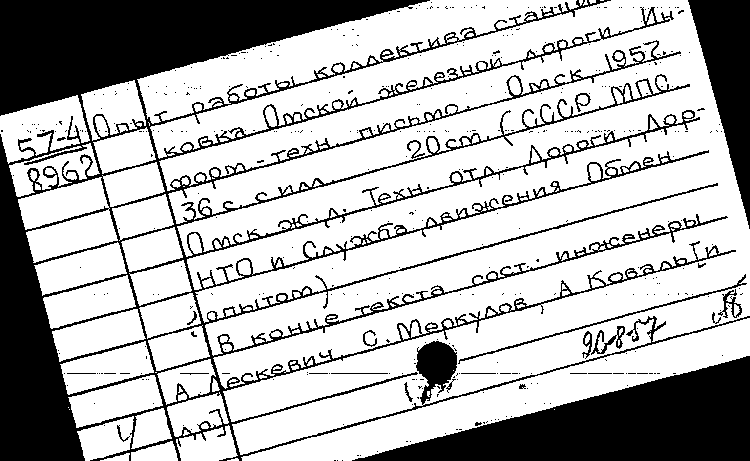 57-4
8962
Опыт работы коллектива станции
ковка Омской железной дороги. Ин-
форм.-техн. письмо. Омск, 1957.
36 с. с илл. 20 см. (СССР МПС.
Омск. ж.д. Техн. отд. Дороги, Дор-
НТО и Служба движения Обмен
опытом)
В конце текста сост.: инженеры
А. Лескевич, С. Меркулов, А Коваль [и
др.]
Ч
20-8-57